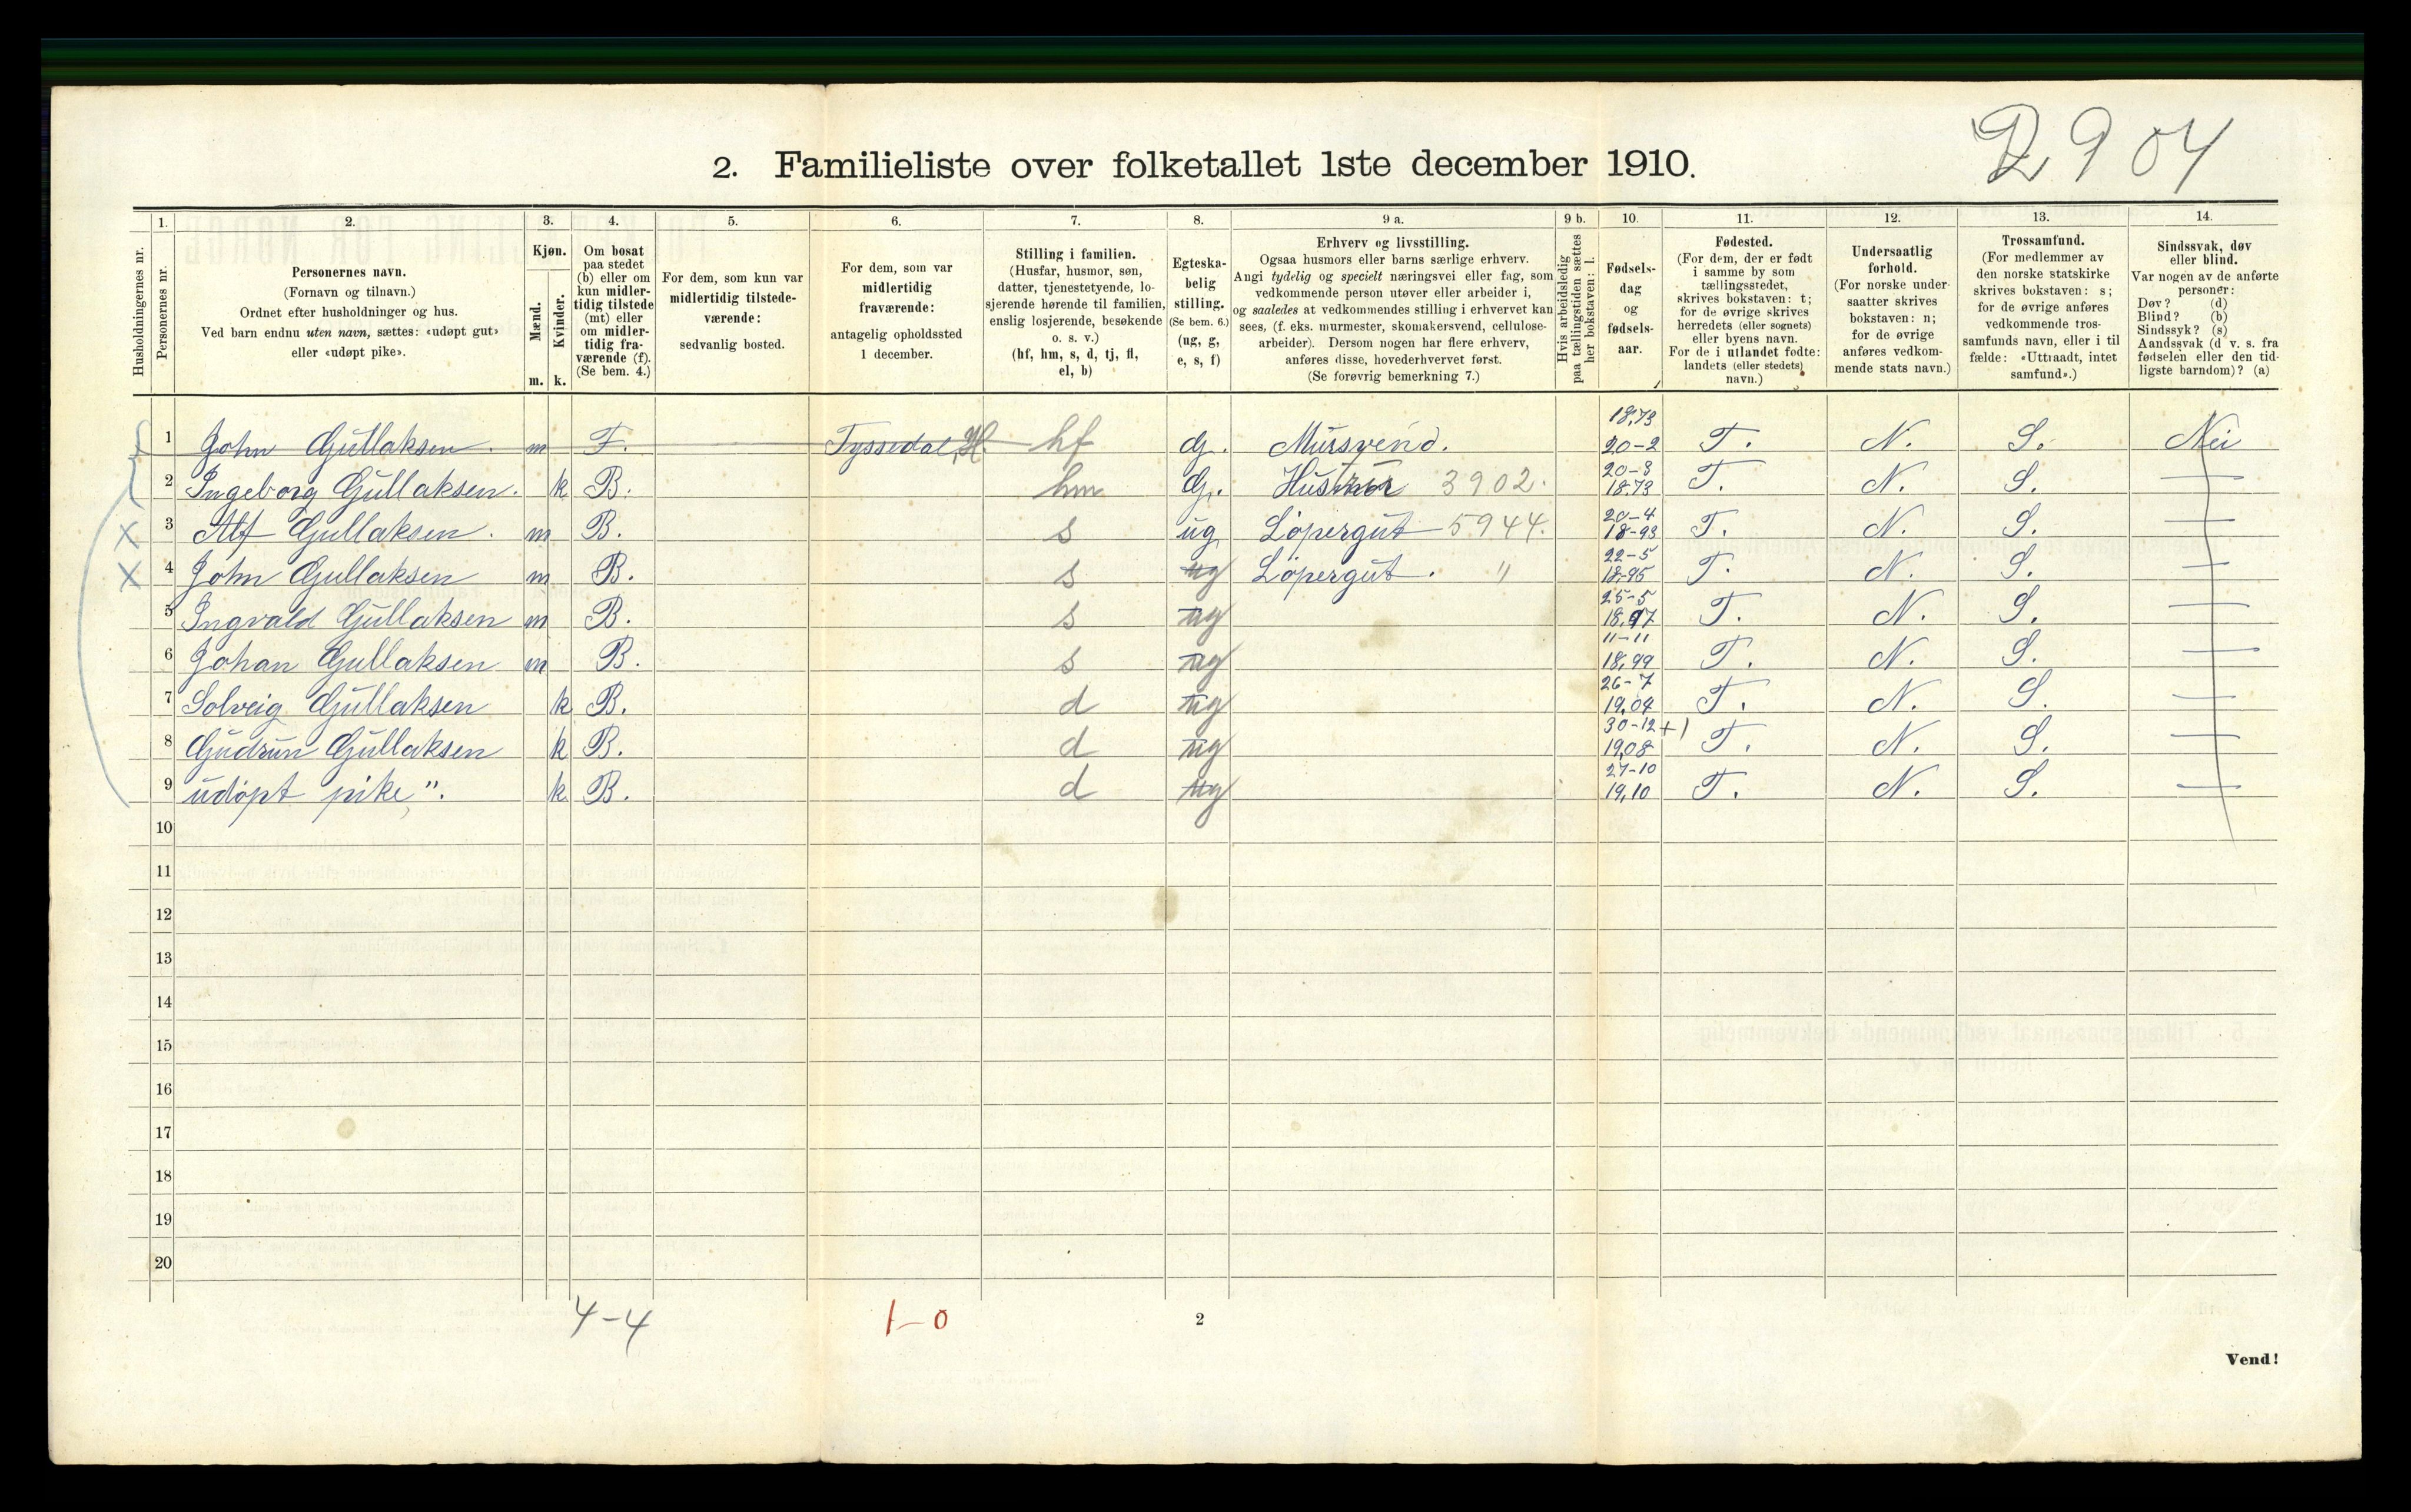 2904
2. Familieliste over folketallet 1ste december 1910.
Husholdningernes nr.
1. Personernes nr.
2. Personernes navn.
(Fornavn og tilnavn.)
Ordnet efter husholdninger og hus.
Ved barn endnu uten navn, sættes: «udøpt gut»
eller «udøpt pike».
3. Kjøn.
Mænd. m.
Kvinder. k.
4. Om bosat
paa stedet
(b) eller om
kun midler-
tidig tilstede
(mt) eller
om midler-
tidig fra-
værende (f).
(Se bem. 4.)
5. For dem, som kun var
midlertidig tilstede-
værende:
sedvanlig bosted.
6. For dem, som var
midlertidig
fraværende:
antagelig opholdssted
1 december.
7. Stilling i familien.
(Husfar, husmor, søn,
datter, tjenestetyende, lo-
sjerende hørende til familien,
enslig losjerende, besøkende
o. s. v.)
(hf, hm, s, d, tj, fl,
el, b)
8. Egteska-
belig
stilling.
(Se bem. 6.)
(ug, g,
e, s, f)
9 a. Erhverv og livsstilling.
Ogsaa husmors eller barns særlige erhverv.
Angi tydelig og specielt næringsvei eller fag, som
vedkommende person utøver eller arbeider i,
og saaledes at vedkommendes stilling i erhvervet kan
sees, (f. eks. murmester, skomakersvend, cellulose-
arbeider). Dersom nogen har flere erhverv,
anføres disse, hovederhvervet først.
(Se forøvrig bemerkning 7.)
9 b. Hvis arbeidsledig
paa tællingstiden sættes
her bokstaven: l.
10. Fødsels-
dag
og
fødsels-
aar.
11. Fødested.
(For dem, der er født
i samme by som
tællingsstedet,
skrives bokstaven: t;
for de øvrige skrives
herredets (eller sognets)
eller byens navn.
For de i utlandet fødte:
landets (eller stedets)
navn.)
12. Undersaatlig
forhold.
(For norske under-
saatter skrives
bokstaven: n;
for de øvrige
anføres vedkom-
mende stats navn.)
13. Trossamfund.
(For medlemmer av
den norske statskirke
skrives bokstaven: s;
for de øvrige anføres
vedkommende tros-
samfunds navn, eller i til
fælde: «Uttraadt, intet
samfund».)
14. Sindssvak, døv
eller blind.
Var nogen av de anførte
personer:
Døv? (d)
Blind? (b)
Sindssyk? (s)
Aandssvak (d. v. s. fra
fødselen eller den tid-
ligste barndom)? (a)
1 John Gullaksen. m F. Tyssedal, H. hf G. Mursvend. 18,73 20-2 T. N. S. Nei
2 Ingeborg Gullaksen. k B. hm G. Husmor 3902. 20-3 18,73 T. N. S. —
X 3 Alf Gullaksen. m B. s ug Löpergut 5944. 20-4 18-93 T. N. S. —
X 4 John Gullaksen m B. s ug Löpergut. " 22-5 18-95 T. N. S. —
5 Ingvald Gullaksen m B. s ug 25-5 18,97 T. N. S. —
6 Johan Gullaksen m B. s ug 11-11 18,99 T. N. S. —
7 Solveig Gullaksen k B. d ug 26-7 19,04 T. N. S. —
8 Gudrun Gullaksen k B. d ug 30-12 +1 19,08 T. N. S. —
9 udöpt pike". k B. d ug 27-10 19,10 T. N. S. —
10
11
12
13
14
15
16
17
18
19
20
4-4 1-0 2
Vend!